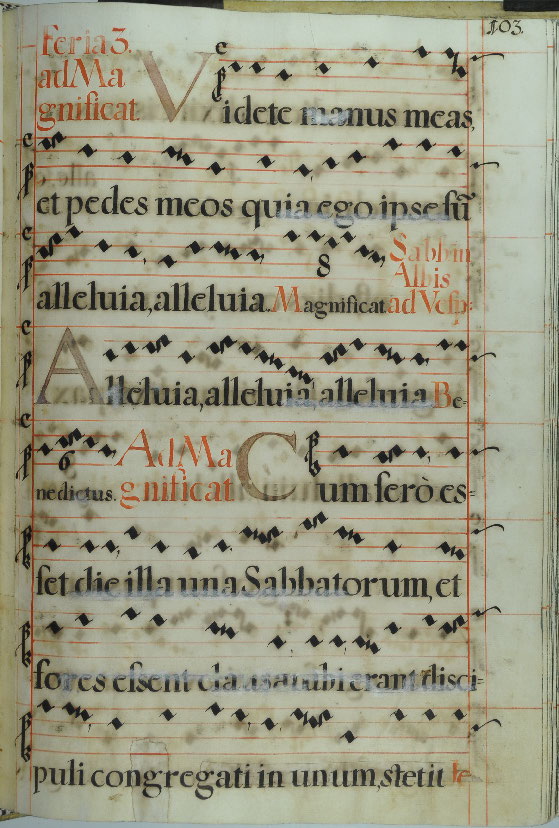 103.
Feria 3.
ad Ma
gnificat.
Videte manus meas,
et pedes meos quia ego ipse sũ
alleluia, alleluia. Magnificat
8
Sabb. in
Albis
ad Vesp.
Alleluia, alleluia, alleluia Be-
6
nedictus. Ad Ma
gnificat
Cum serò es=
set die illa una Sabbatorum, et
fores essent clausæ ubi erant disci=
puli congregati in unum, stetit Je